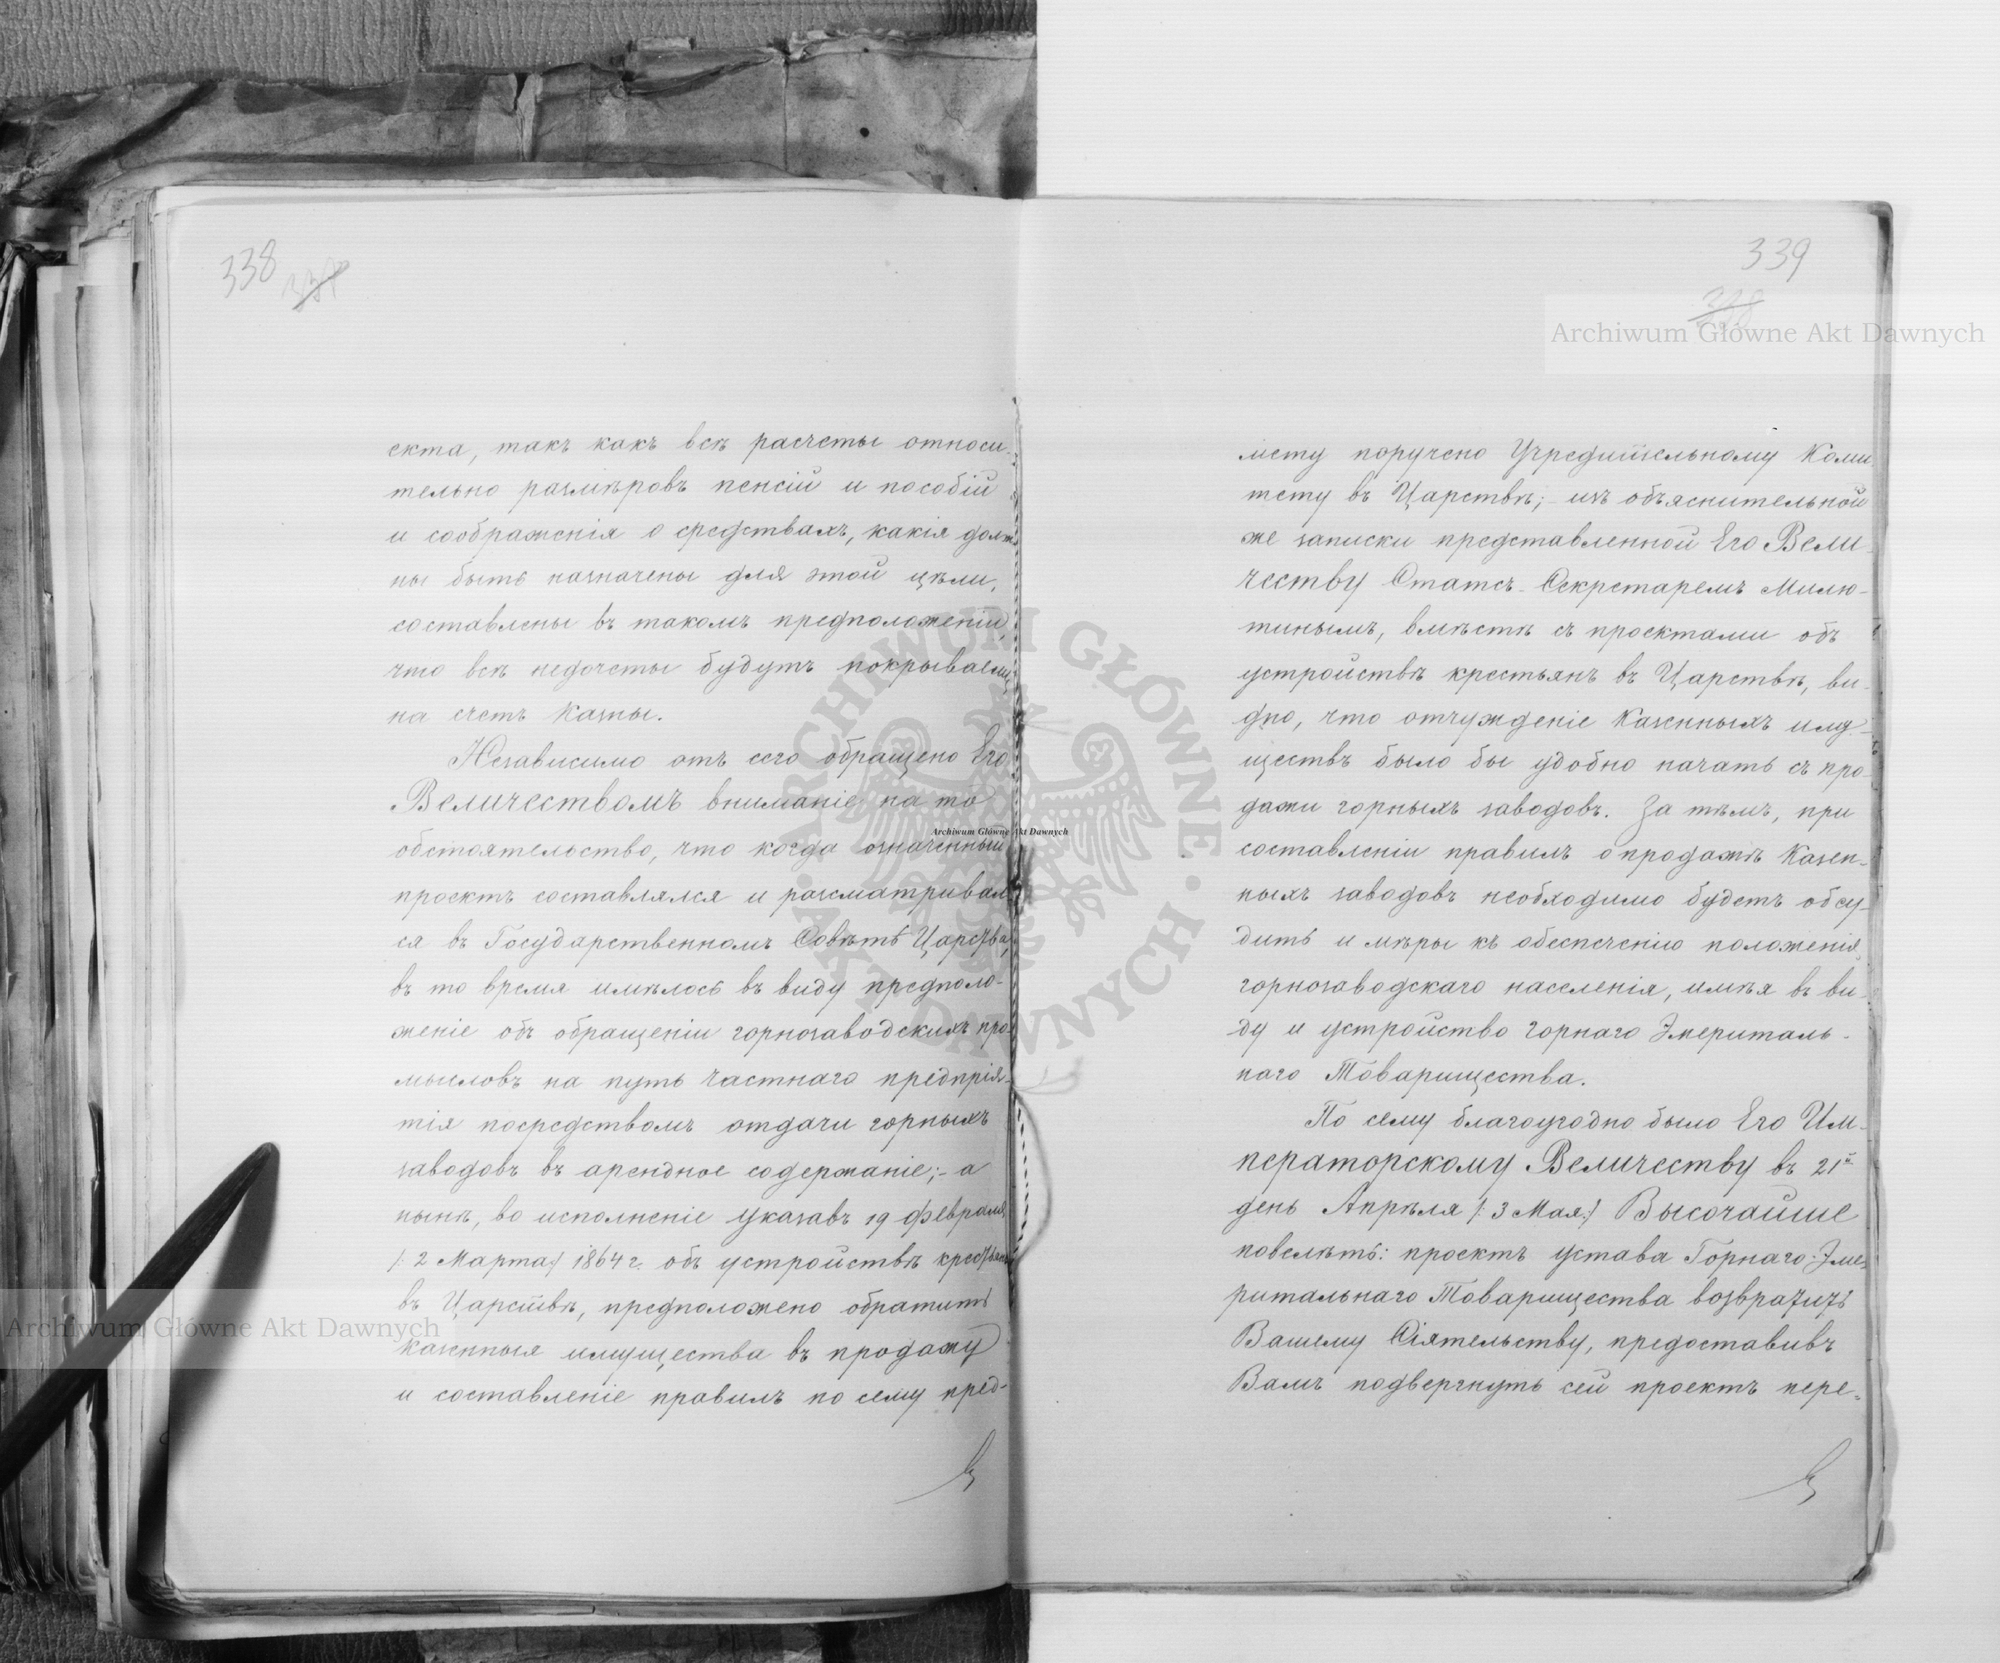 338
екта, такъ какъ всѣ расчеты относи-
тельно размѣровъ пенсій и пособій
и соображенія о средствахъ, какія долж
ны быть назначены для этой цѣли,
составлены въ такомъ предположеніи,
что всѣ недочеты будутъ покрываемы
на счетъ Казны.
Независимо отъ сего обращено Его
Величествомъ вниманіе на то
обстоятельство, что когда означенный
проектъ составлялся и разсматривал
ся въ Государственномъ Совѣтѣ Царства,
въ то время имѣлось въ виду предполо-
женіе объ обращеніи горнозаводскихъ про-
мысловъ на путь частнаго предпрія-
тія посредствомъ отдачи горныхъ
заводовъ въ арендное содержаніе;- а
нынѣ, во исполненіе Указовъ 19 Февраля
/: 2 Марта:/ 1864 г. объ устройствѣ крестьянъ
въ Царствѣ, предположено обратить
казенныя имущества въ продажу
и составленіе правилъ по сему пред-
339
мету поручено Учредительному Коми
тету въ Царствѣ;- изъ объяснительной
же записки представленной Его Вели-
честву Статсъ-Секретаремъ Милю-
тинымъ, вмѣстѣ съ проектами объ
устройствѣ крестьянъ въ Царствѣ, ви-
дно, что отчужденіе Казенныхъ иму-
ществъ было бы удобно начать съ про-
дажи горныхъ заводовъ. За тѣмъ, при
составленіи правилъ о продажѣ Казен-
ныхъ заводовъ необходимо будетъ обсу-
дить и мѣры къ обезпеченію положенія
горнозаводскаго населенія, имѣя въ ви-
ду и устройство Горнаго Эмериталь-
наго Товарищества.
По сему благоугодно было Его Им-
ператорскому Величеству въ 21й
день Апрѣля /: 3 Мая:/ Высочайше
повелѣть: проектъ устава Горнаго Эме-
ритальнаго Товарищества возвратить
Вашему Сіятельству, предоставивъ
Вамъ подвергнуть сей проектъ пере-
Archiwum Główne Akt Dawnych
Archiwum Główne Akt Dawnych
Archiwum Główne Akt Dawnych
ARCHIWUM GŁÓWNE • AKT DAWNYCH •